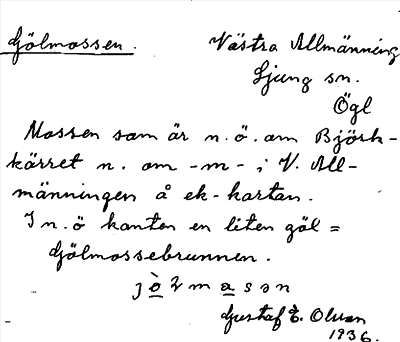 Gölmossen. Västra Allmänning
Ljung sn.
Ögl
Mossen som är n.ö. om Björk-
kärret n. om -m- i V. All-
männingen å ek-kartan.
I n.ö kanten en liten göl =
Gölmossebrunnen.
Gustaf E. Olsson
1936.